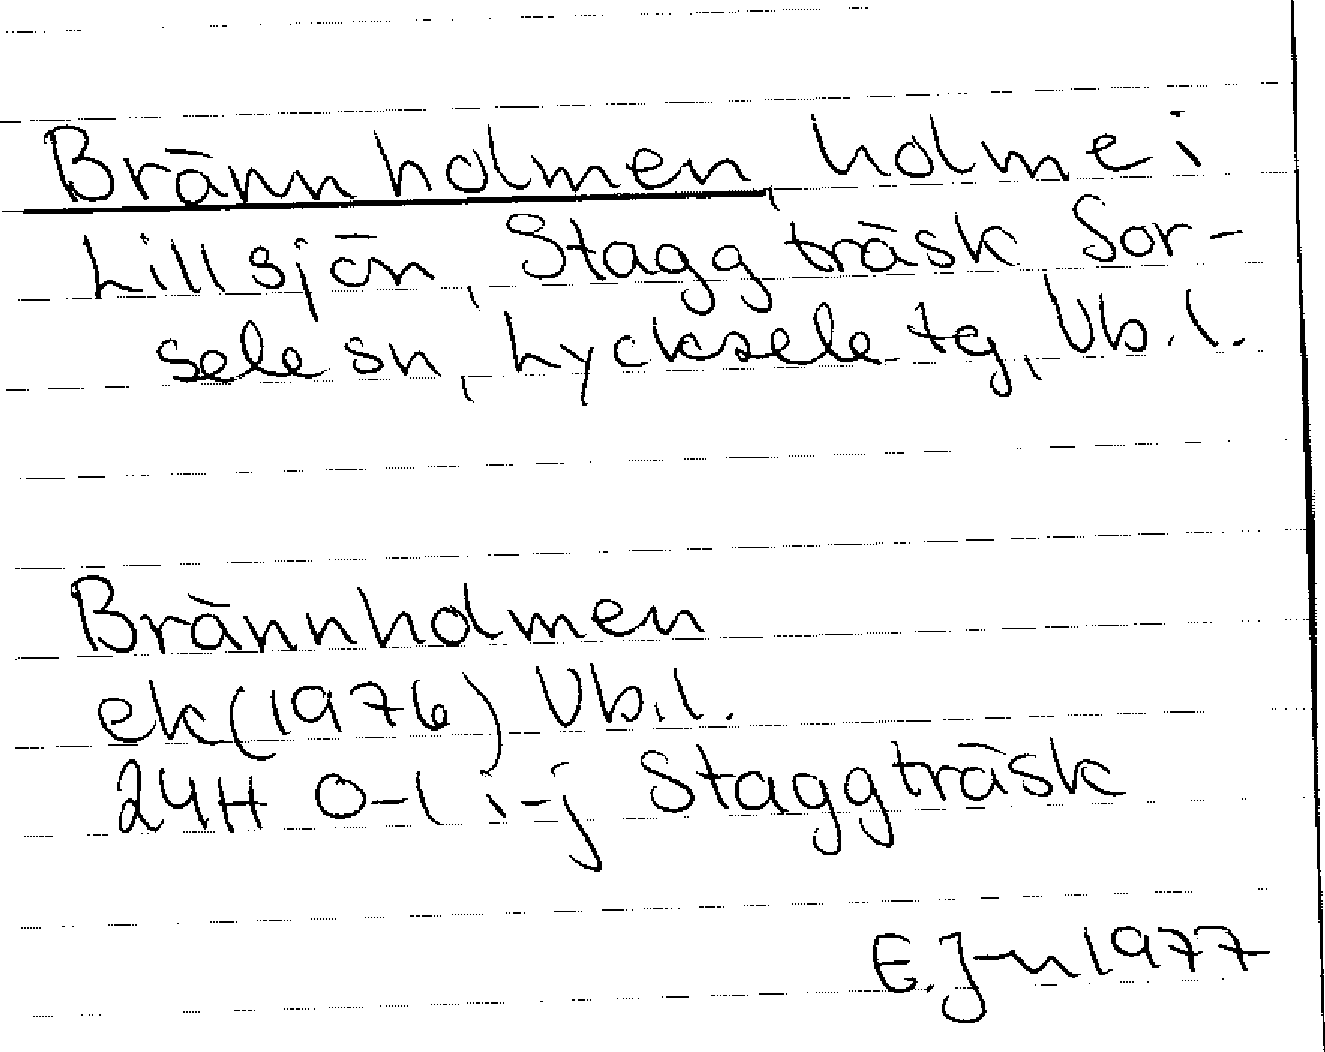 Brännholmen, holme i
Lillsjön, Staggträsk Sor-
sele sn, Lycksele tg, Vb.l.
Brännholmen
ek (1976) Vb.l.
24H 0-1 i-j Staggträsk
E.J-n 1977